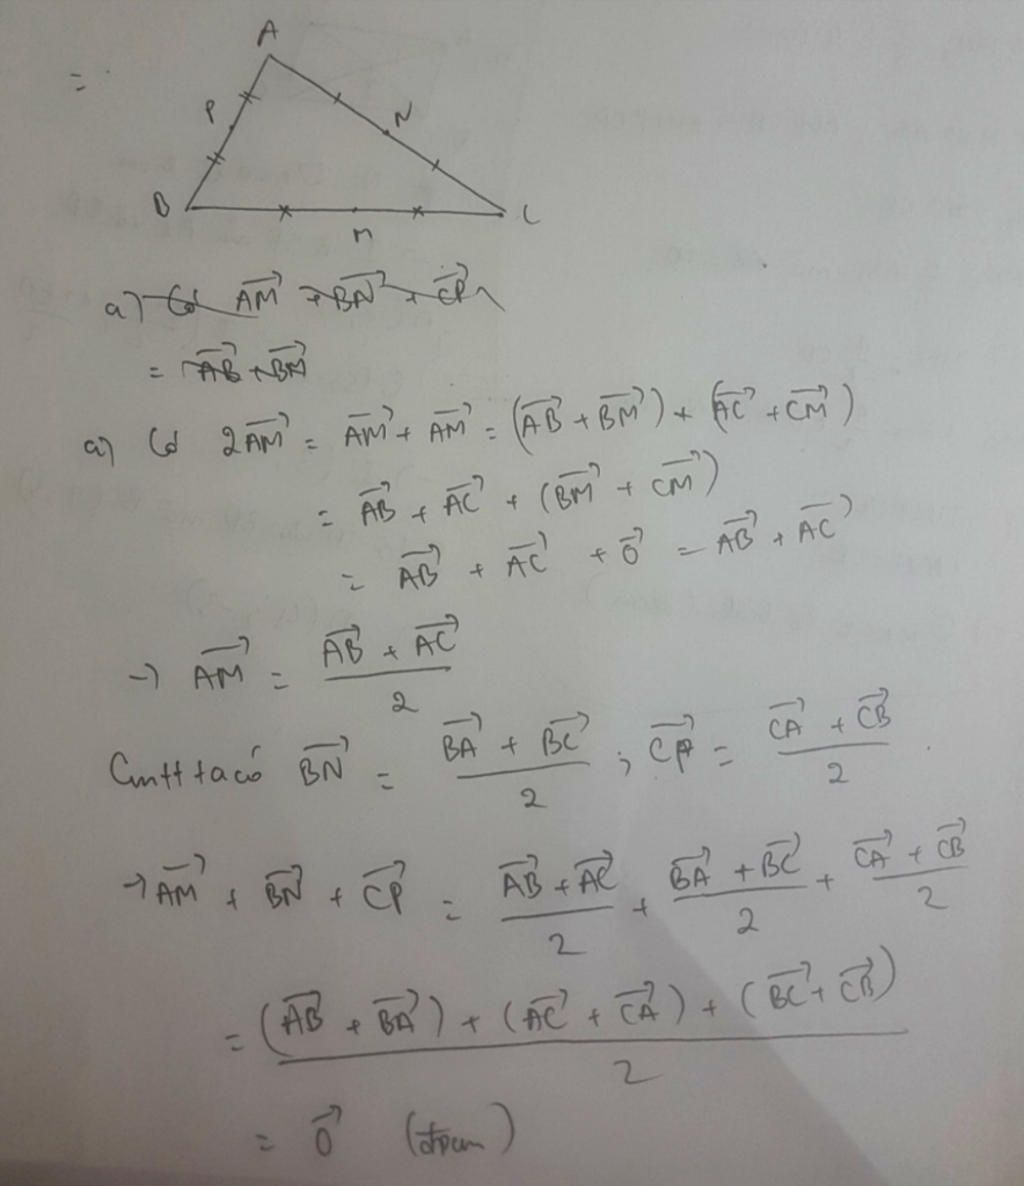 A
=
P
N
B
C
M
a) Có AM⃗ + BN⃗ + CP⃗
= AB⃗ + BM⃗
a) Có 2AM⃗ = AM⃗ + AM⃗ = (AB⃗ + BM⃗) + (AC⃗ + CM⃗)
= AB⃗ + AC⃗ + (BM⃗ + CM⃗)
= AB⃗ + AC⃗ + 0⃗ = AB⃗ + AC⃗
→ AM⃗ = (AB⃗ + AC⃗)/2
Cmtt ta có BN⃗ = (BA⃗ + BC⃗)/2 ; CP⃗ = (CA⃗ + CB⃗)/2 .
→ AM⃗ + BN⃗ + CP⃗ = (AB⃗ + AC⃗)/2 + (BA⃗ + BC⃗)/2 + (CA⃗ + CB⃗)/2
= ((AB⃗ + BA⃗) + (AC⃗ + CA⃗) + (BC⃗ + CB⃗))/2
= 0⃗ (đpcm)